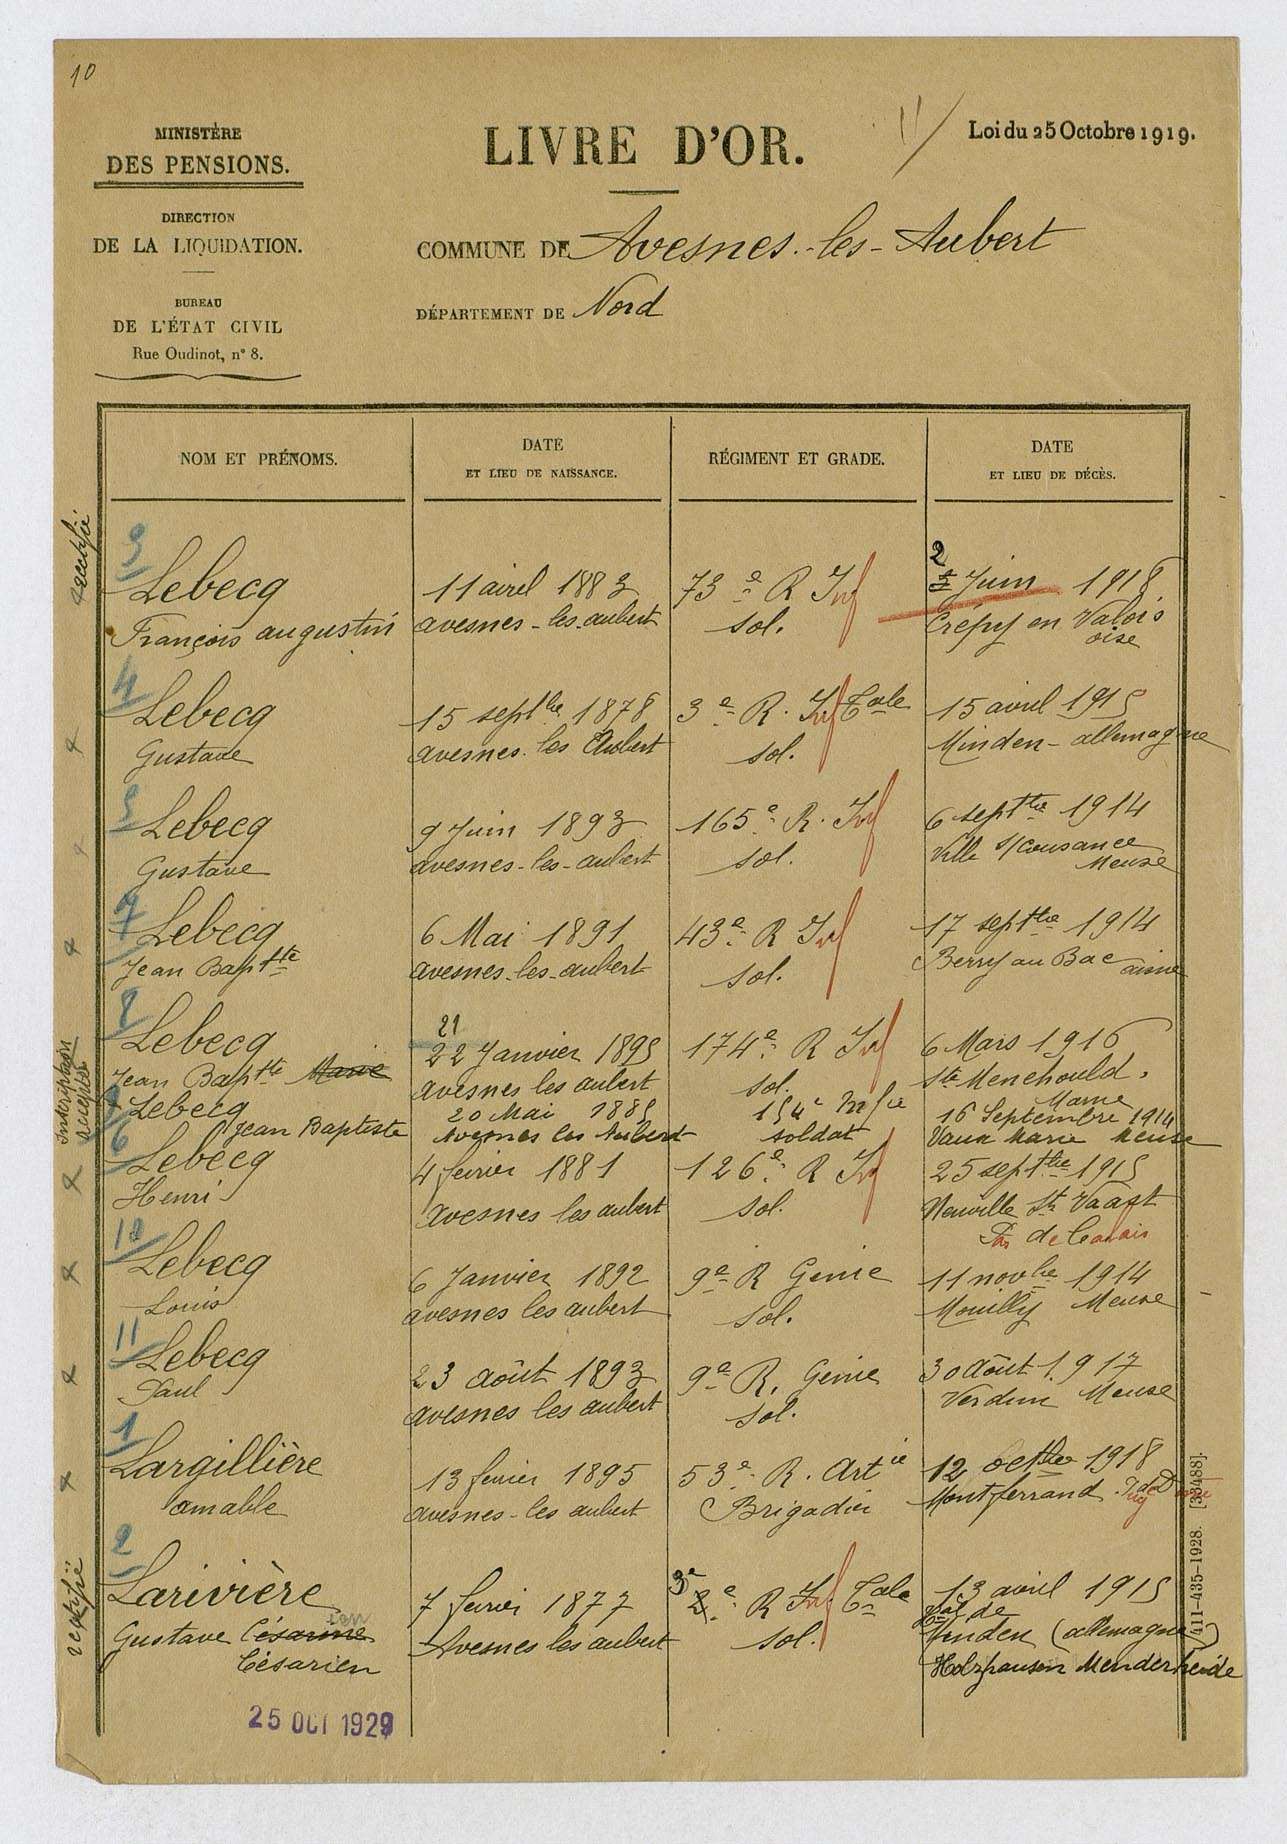 10
MINISTÈRE
DES PENSIONS.
DIRECTION
DE LA LIQUIDATION.
BUREAU
DE L'ÉTAT CIVIL
Rue Oudinot, n° 8.
LIVRE D'OR.
11/
Loi du 25 Octobre 1919.
COMMUNE DE Avesnes-les-Aubert
DÉPARTEMENT DE Nord
NOM ET PRÉNOMS.
DATE
ET LIEU DE NAISSANCE.
RÉGIMENT ET GRADE.
DATE
ET LIEU DE DÉCÈS.
rectifié
3
Lebecq
François augustin
11 avril 1883
avesnes-les-aubert
73e R Inf
sol.
2
Juin 1918
Crépy en Valois
oise
4
Lebecq
Gustave
15 septbre 1878
avesnes-les Aubert
3e R. Inf Cole
sol.
15 avril 1915
Minden-allemagne
5
Lebecq
Gustave
9 Juin 1893
avesnes-les-aubert
165e R. Inf
sol.
6 septbre 1914
Ville s/Cousance
Meuse
7
Lebecq
Jean Baptte
6 Mai 1891
avesnes-les-aubert
43e R Inf
sol.
17 septbre 1914
Berry au Bac
aisne
8
Lebecq
Jean Baptte Marie
21
22 Janvier 1895
avesnes les aubert
174e R Inf
sol.
6 Mars 1916
Ste Menehould.
Marne
Inscription
9
Lebecq
Jean Baptiste
20 Mai 1885
Avesnes les Aubert
154e Infie
soldat
16 Septembre 1914
Vaux Marie Meuse
6
Lebecq
Henri
4 fevrier 1881
avesnes les aubert
126e R Inf
sol.
25 septbre 1915
Neuville St Vaast
Pas de Calais
10
Lebecq
Louis
6 Janvier 1892
avesnes les aubert
9e R Genie
sol.
11 novbre 1914
Mouilly Meuse
11
Lebecq
Paul
23 août 1893
avesnes les aubert
9e R. Genie
sol.
30 août 1917
Verdun Meuse
1
Largillière
amable
13 fevrier 1895
avesnes-les aubert
53e R. Artie
Brigadier
12 Octbre 1918
Montferrand Puy de Dome
rectifié
2
Larivière
Gustave Césarine
ien
Césarien
7 fevrier 1877
Avesnes les aubert
3e
2e R Inf Cole
sol.
13 avril 1915
Minden (allemagne)
Holzhausen Menderheide
25 OCT 1929
411-435-1928. [33488].